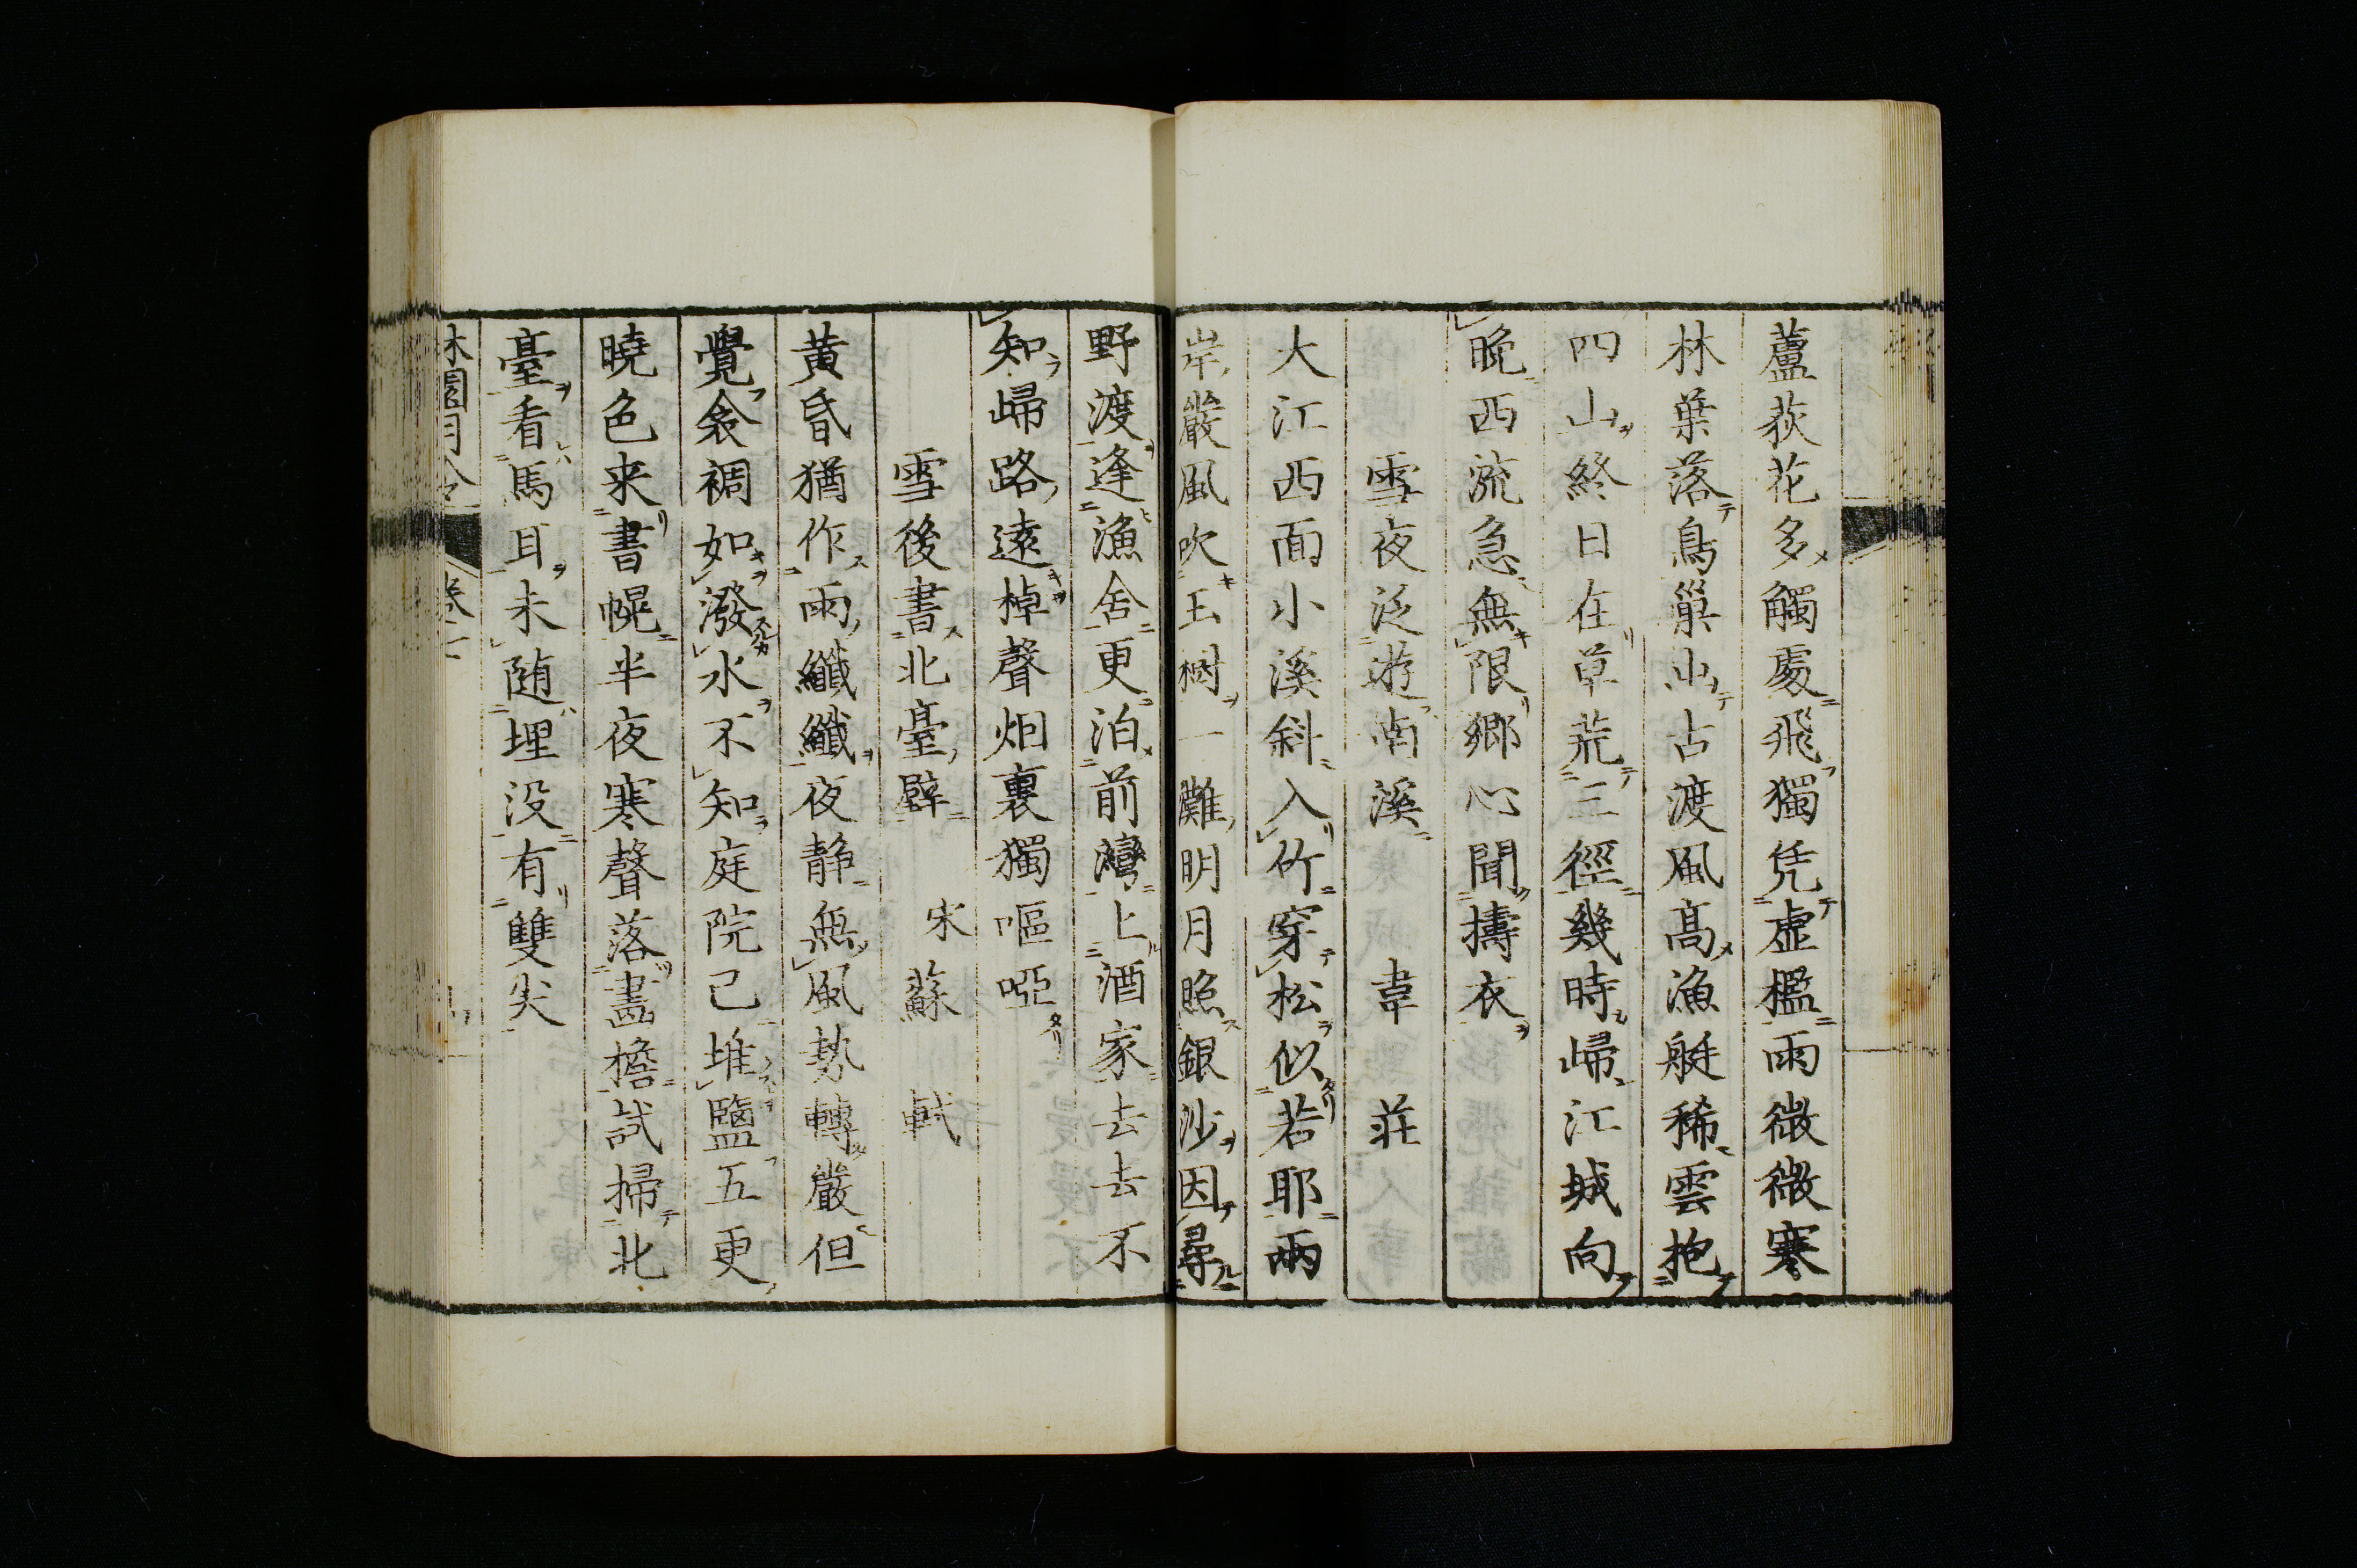 蘆荻花多觸處飛獨凭虛檻雨微微寒
林葉落鳥巢出古渡風髙漁艇稀雲抱
四山終日在草荒三徑幾時歸江城向
晚西流急無限鄉心聞擣衣
雪夜泛遊南溪　韋　荘
大江西面小溪斜入竹穿松似若耶兩
岸嚴風吹玉樹一灘明月照銀沙因尋
野渡逢漁舍更泊前灣上酒家去去不
知歸路遠棹聲烟裏獨嘔啞
雪後書北臺壁　宋　蘇　軾
黄昏猶作雨纖纖夜静無風勢轉嚴但
覺衾裯如潑水不知庭院已堆鹽五更
曉色来書幌半夜寒聲落畫檐試掃北
臺看馬耳未随埋没有雙尖
林園月令　卷二